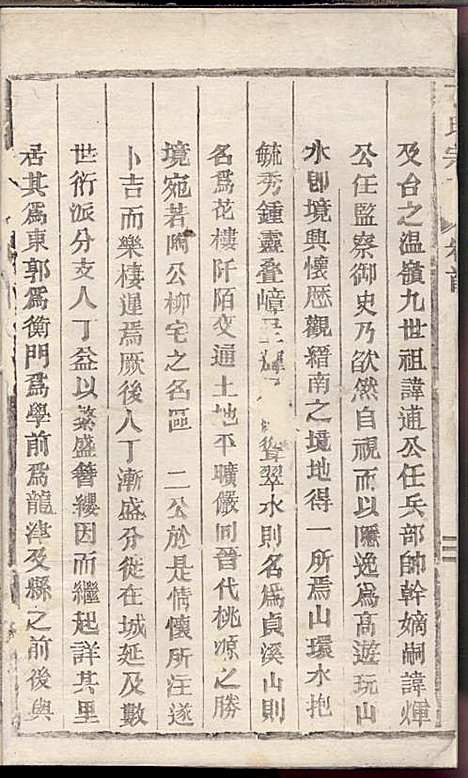 氏宗
卷首
及台之温嶺九世祖諱通公任兵部帥幹嫡嗣諱煇
公任監察御史乃欲然自視而以隱逸為高遊玩山
水即境興懷歷觀縉南之境地得一所焉山環水抱
毓秀鍾靈叠嶂 聳翠水則名為貞溪山則
名為花樓阡陌交通土地平曠儼同晉代桃源之勝
境宛若陶公柳宅之名區 二公於是情懷所注遂
卜吉而樂棲遲焉厥後人丁漸盛分徙在城延及數
世衍派分支人丁益以繁盛簪纓因而繼起詳其里
居其為東郭為衡門為學前為龍津及縣之前後與